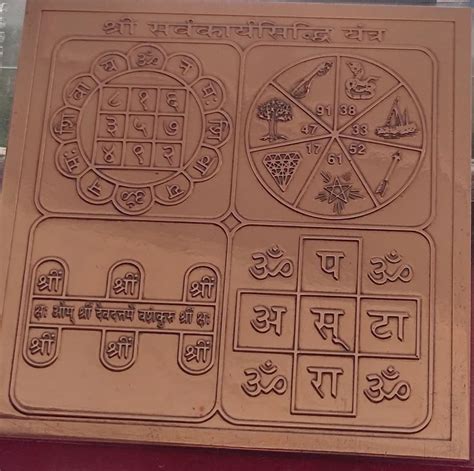 श्री सर्वकार्यसिद्धि यंत्र
ॐ न मः शि वा य ॐ न मः शि वा य
८ १ ६
३ ५ ७
४ ९ २
91 38
47 33
17 52
61
श्रीं श्रीं श्रीं
क्षः ओम् श्रीं देवदत्तमे वशंकुरु श्रीं क्षः
श्रीं श्रीं श्रीं
ॐ प ॐ
अ स् टा
ॐ रा ॐ